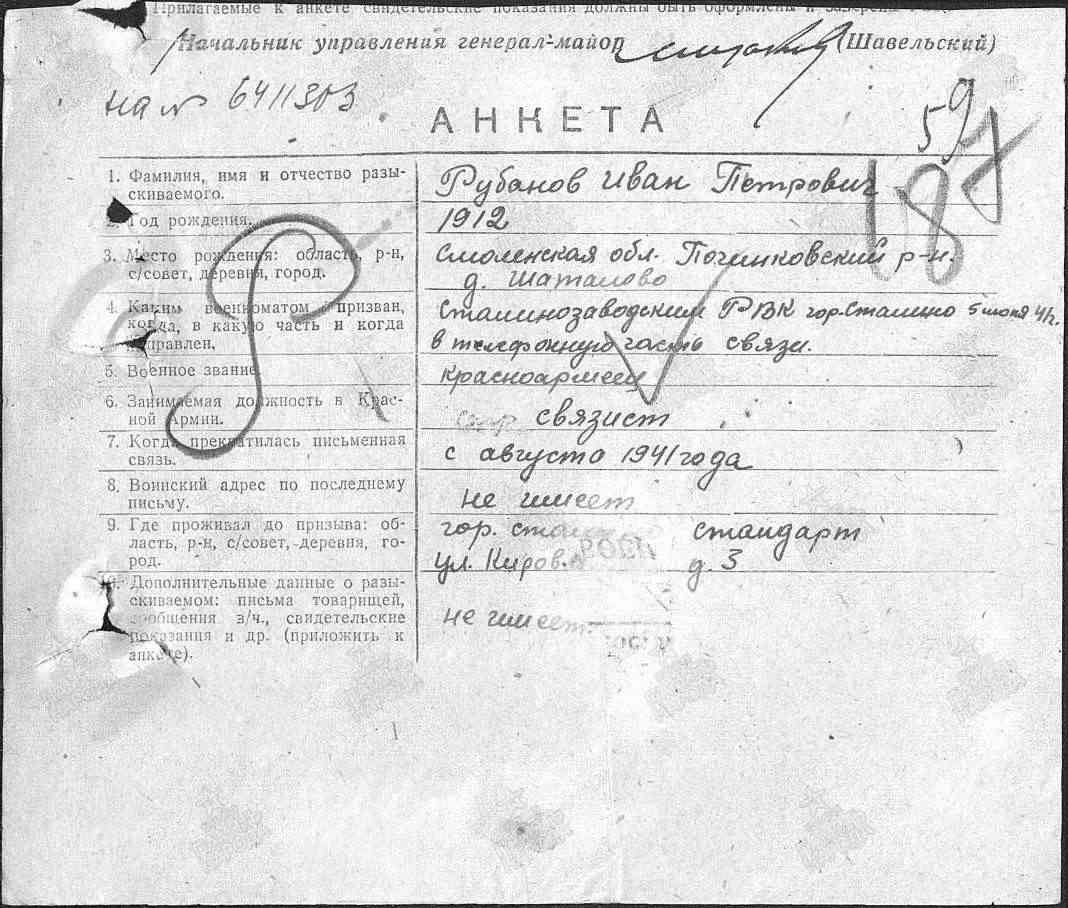 Прилагаемые к анкете свидетельские показания должны быть оформлены и заверены
Начальник управления генерал-майор (Шавельский)
на № 6411303
59
187
АНКЕТА
1. Фамилия, имя и отчество разы-
скиваемого.
Рубанов Иван Петрович
2. Год рождения.
1912
3. Место рождения: область, р-н,
с/совет, деревня, город.
Смоленская обл. Починковский р-н.
д. Шаталово
4. Каким военкоматом призван,
когда, в какую часть и когда
направлен,
Сталинозаводский РВК гор. Сталино 5 июля 41г.
в телефонную часть связи.
5. Военное звание.
Красноармеец
6. Занимаемая должность в Крас-
ной Армии.
связист
7. Когда прекратилась письменная
связь.
с августа 1941 года
8. Воинский адрес по последнему
письму.
не имеет
9. Где проживал до призыва: об-
ласть, р-н, с/совет, деревня, го-
род.
гор. стандарт
ул. Киров. д. 3
10. Дополнительные данные о разы-
скиваемом: письма товарищей,
сообщения в/ч., свидетельские
показания и др. (приложить к
анкете).
не имеет.